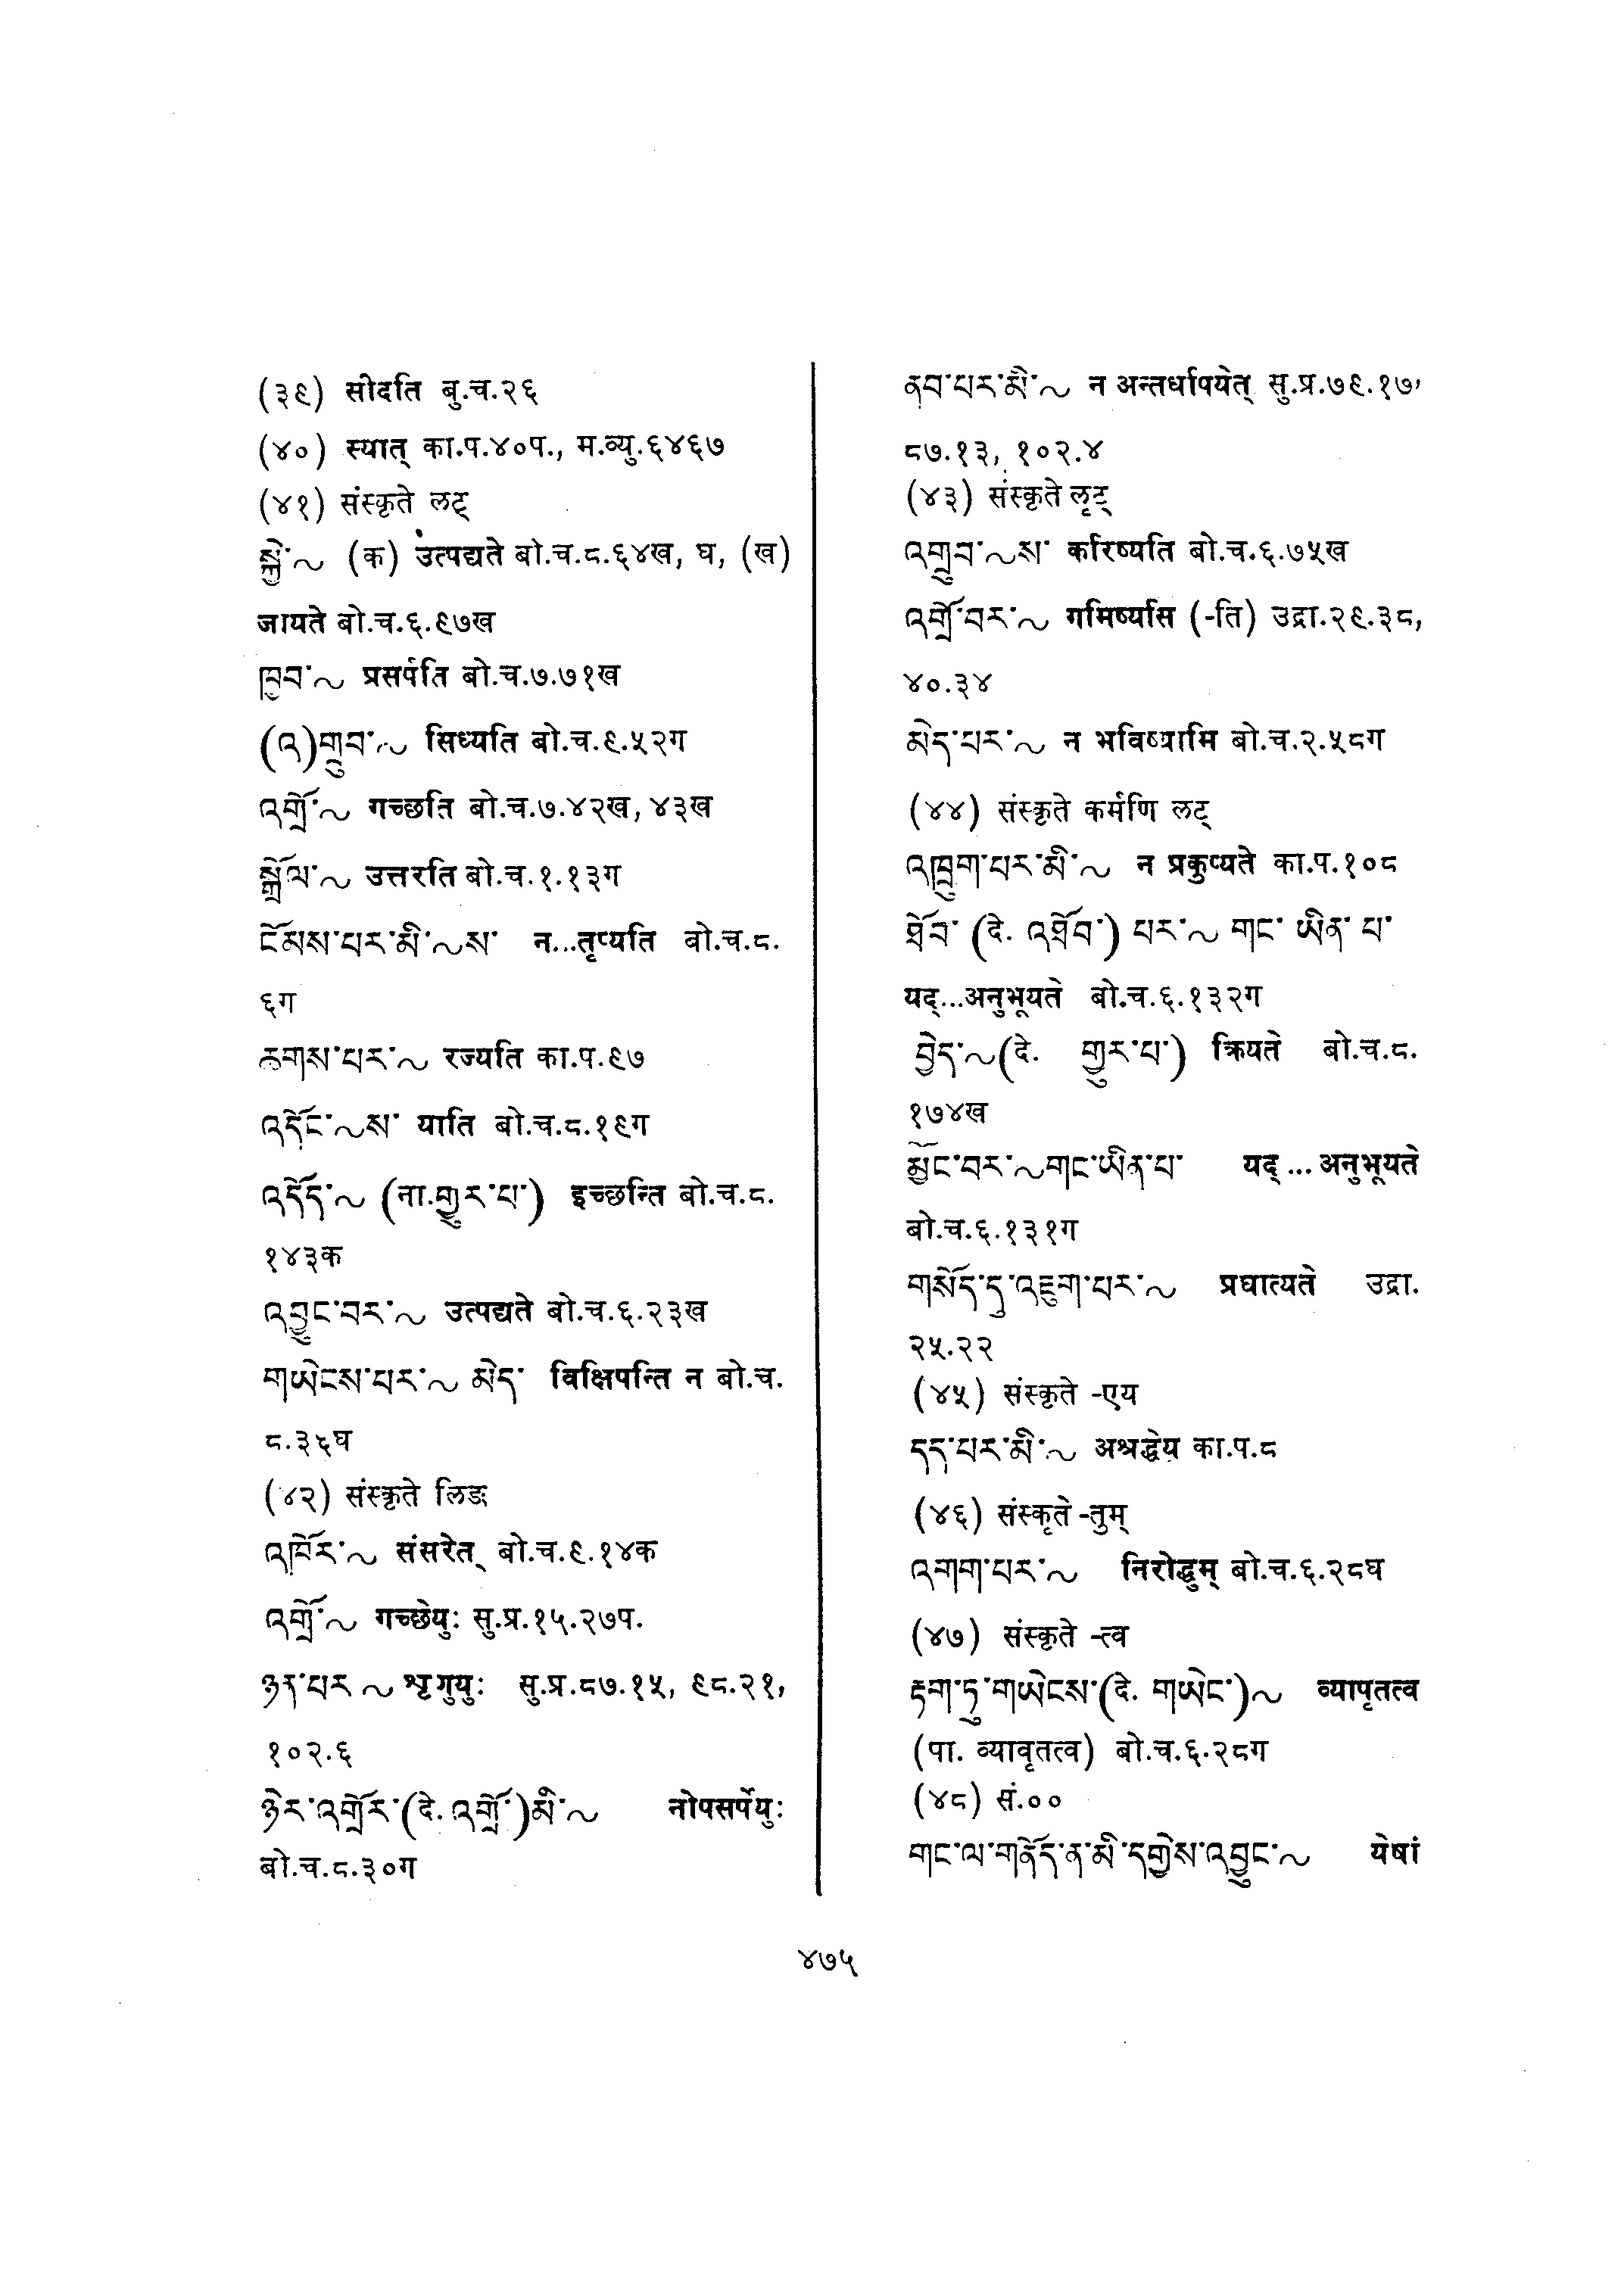 (३९) सीदति बु.च.२६
(४०) स्यात् का.प.४०प., म.व्यु.६४६७
(४१) संस्कृते लट्
སྐྱེ་～ (क) उत्पद्यते बो.च.८.६४ख, घ, (ख)
जायते बो.च.६.९७ख
ཁྱབ་～ प्रसर्पति बो.च.७.७१ख
(འ)གྲུབ་～ सिध्यति बो.च.९.५२ग
འགྲོ་～ गच्छति बो.च.७.४२ख, ४३ख
སྒྲོལ་～ उत्तरति बो.च.१.१३ग
ངོམས་པར་མི་～ས་ न...तृप्यति बो.च.८.
६ग
ཆགས་པར་～ रज्यति का.प.९७
འདོང་～ས་ याति बो.च.८.१९ग
འདོད་～ (ना.གྱུར་པ་) इच्छन्ति बो.च.८.
१४३क
འབྱུང་བར་～ उत्पद्यते बो.च.६.२३ख
གཡེངས་པར་～ མེད་ विक्षिपन्ति न बो.च.
८.३६घ
(४२) संस्कृते लिङ्
འཁོར་～ संसरेत् बो.च.९.१४क
འགྲོ་～ गच्छेयुः सु.प्र.१५.२७प.
ཉན་པར ～ शृणुयुः सु.प्र.८७.१५, ९८.२१,
१०२.६
ཉེར་འགྲོར་(दे. འགྲོ་)མི་～ नोपसर्पेयुः
बो.च.८.३०ग
ནུབ་པར་མི་～ न अन्तर्धापयेत् सु.प्र.७९.१७,
८७.१३, १०२.४
(४३) संस्कृते लृट्
འགྲུབ་～ས་ करिष्यति बो.च.६.७५ख
འགྲོ་བར་～ गमिष्यसि (-ति) उद्रा.२९.३८,
४०.३४
མེད་པར་～ न भविष्यामि बो.च.२.५८ग
(४४) संस्कृते कर्मणि लट्
འཁྲུག་པར་མི་～ न प्रकुप्यते का.प.१०८
ཐོབ་ (दे. འཐོབ་) པར་～ གང་ ཡིན་ པ་
यद्...अनुभूयते बो.च.६.१३२ग
བྱེད་～(दे. གྱུར་པ་) क्रियते बो.च.८.
१७४ख
མྱོང་བར་～གང་ཡིན་པ་ यद् ... अनुभूयते
बो.च.६.१३१ग
གསོད་དུ་འཇུག་པར་～ प्रघात्यते उद्रा.
२५.२२
(४५) संस्कृते -एय
དད་པར་མི་～ अश्रद्धेय का.प.८
(४६) संस्कृते -तुम्
འགག་པར་～ निरोद्धुम् बो.च.६.२८घ
(४७) संस्कृते -त्व
རྟག་ཏུ་གཡེངས་(दे. གཡེང་)～ व्यापृतत्व
(पा. व्यावृतत्व) बो.च.६.२८ग
(४८) सं.००
གང་ལ་གནོད་ན་མི་དགྱེས་འབྱུང་～ येषां
४७५